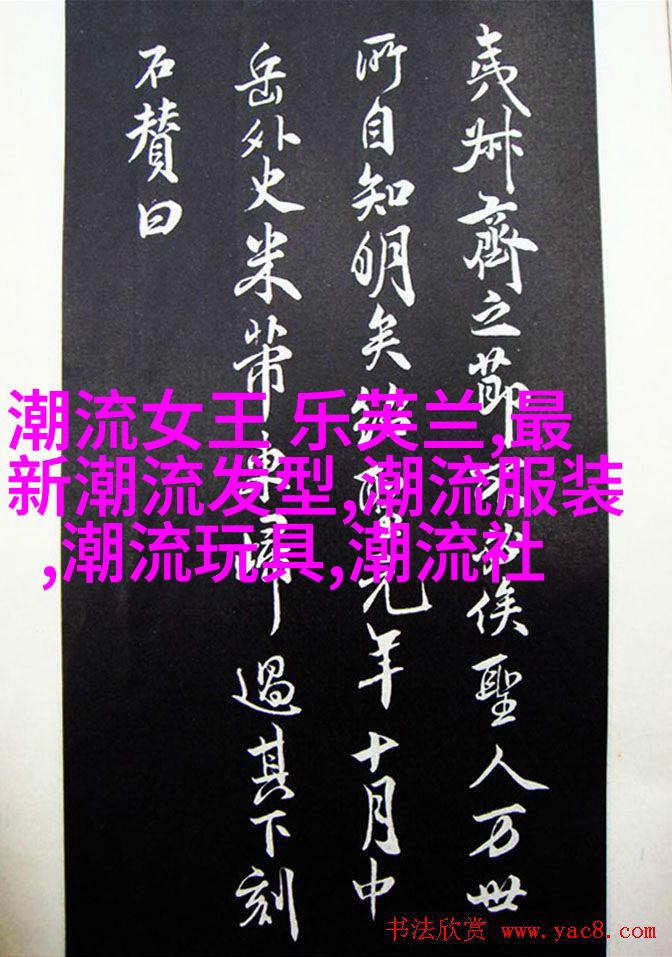 夷叔齊之節俟聖人万世
所自知明矣紹聖元年十月中
岳外史米芾東歸過其下刻
石賛曰
潮流女王 乐芙兰,最
新潮流发型,潮流服装
,潮流玩具,潮流社
书法欣赏 www.yac8.com